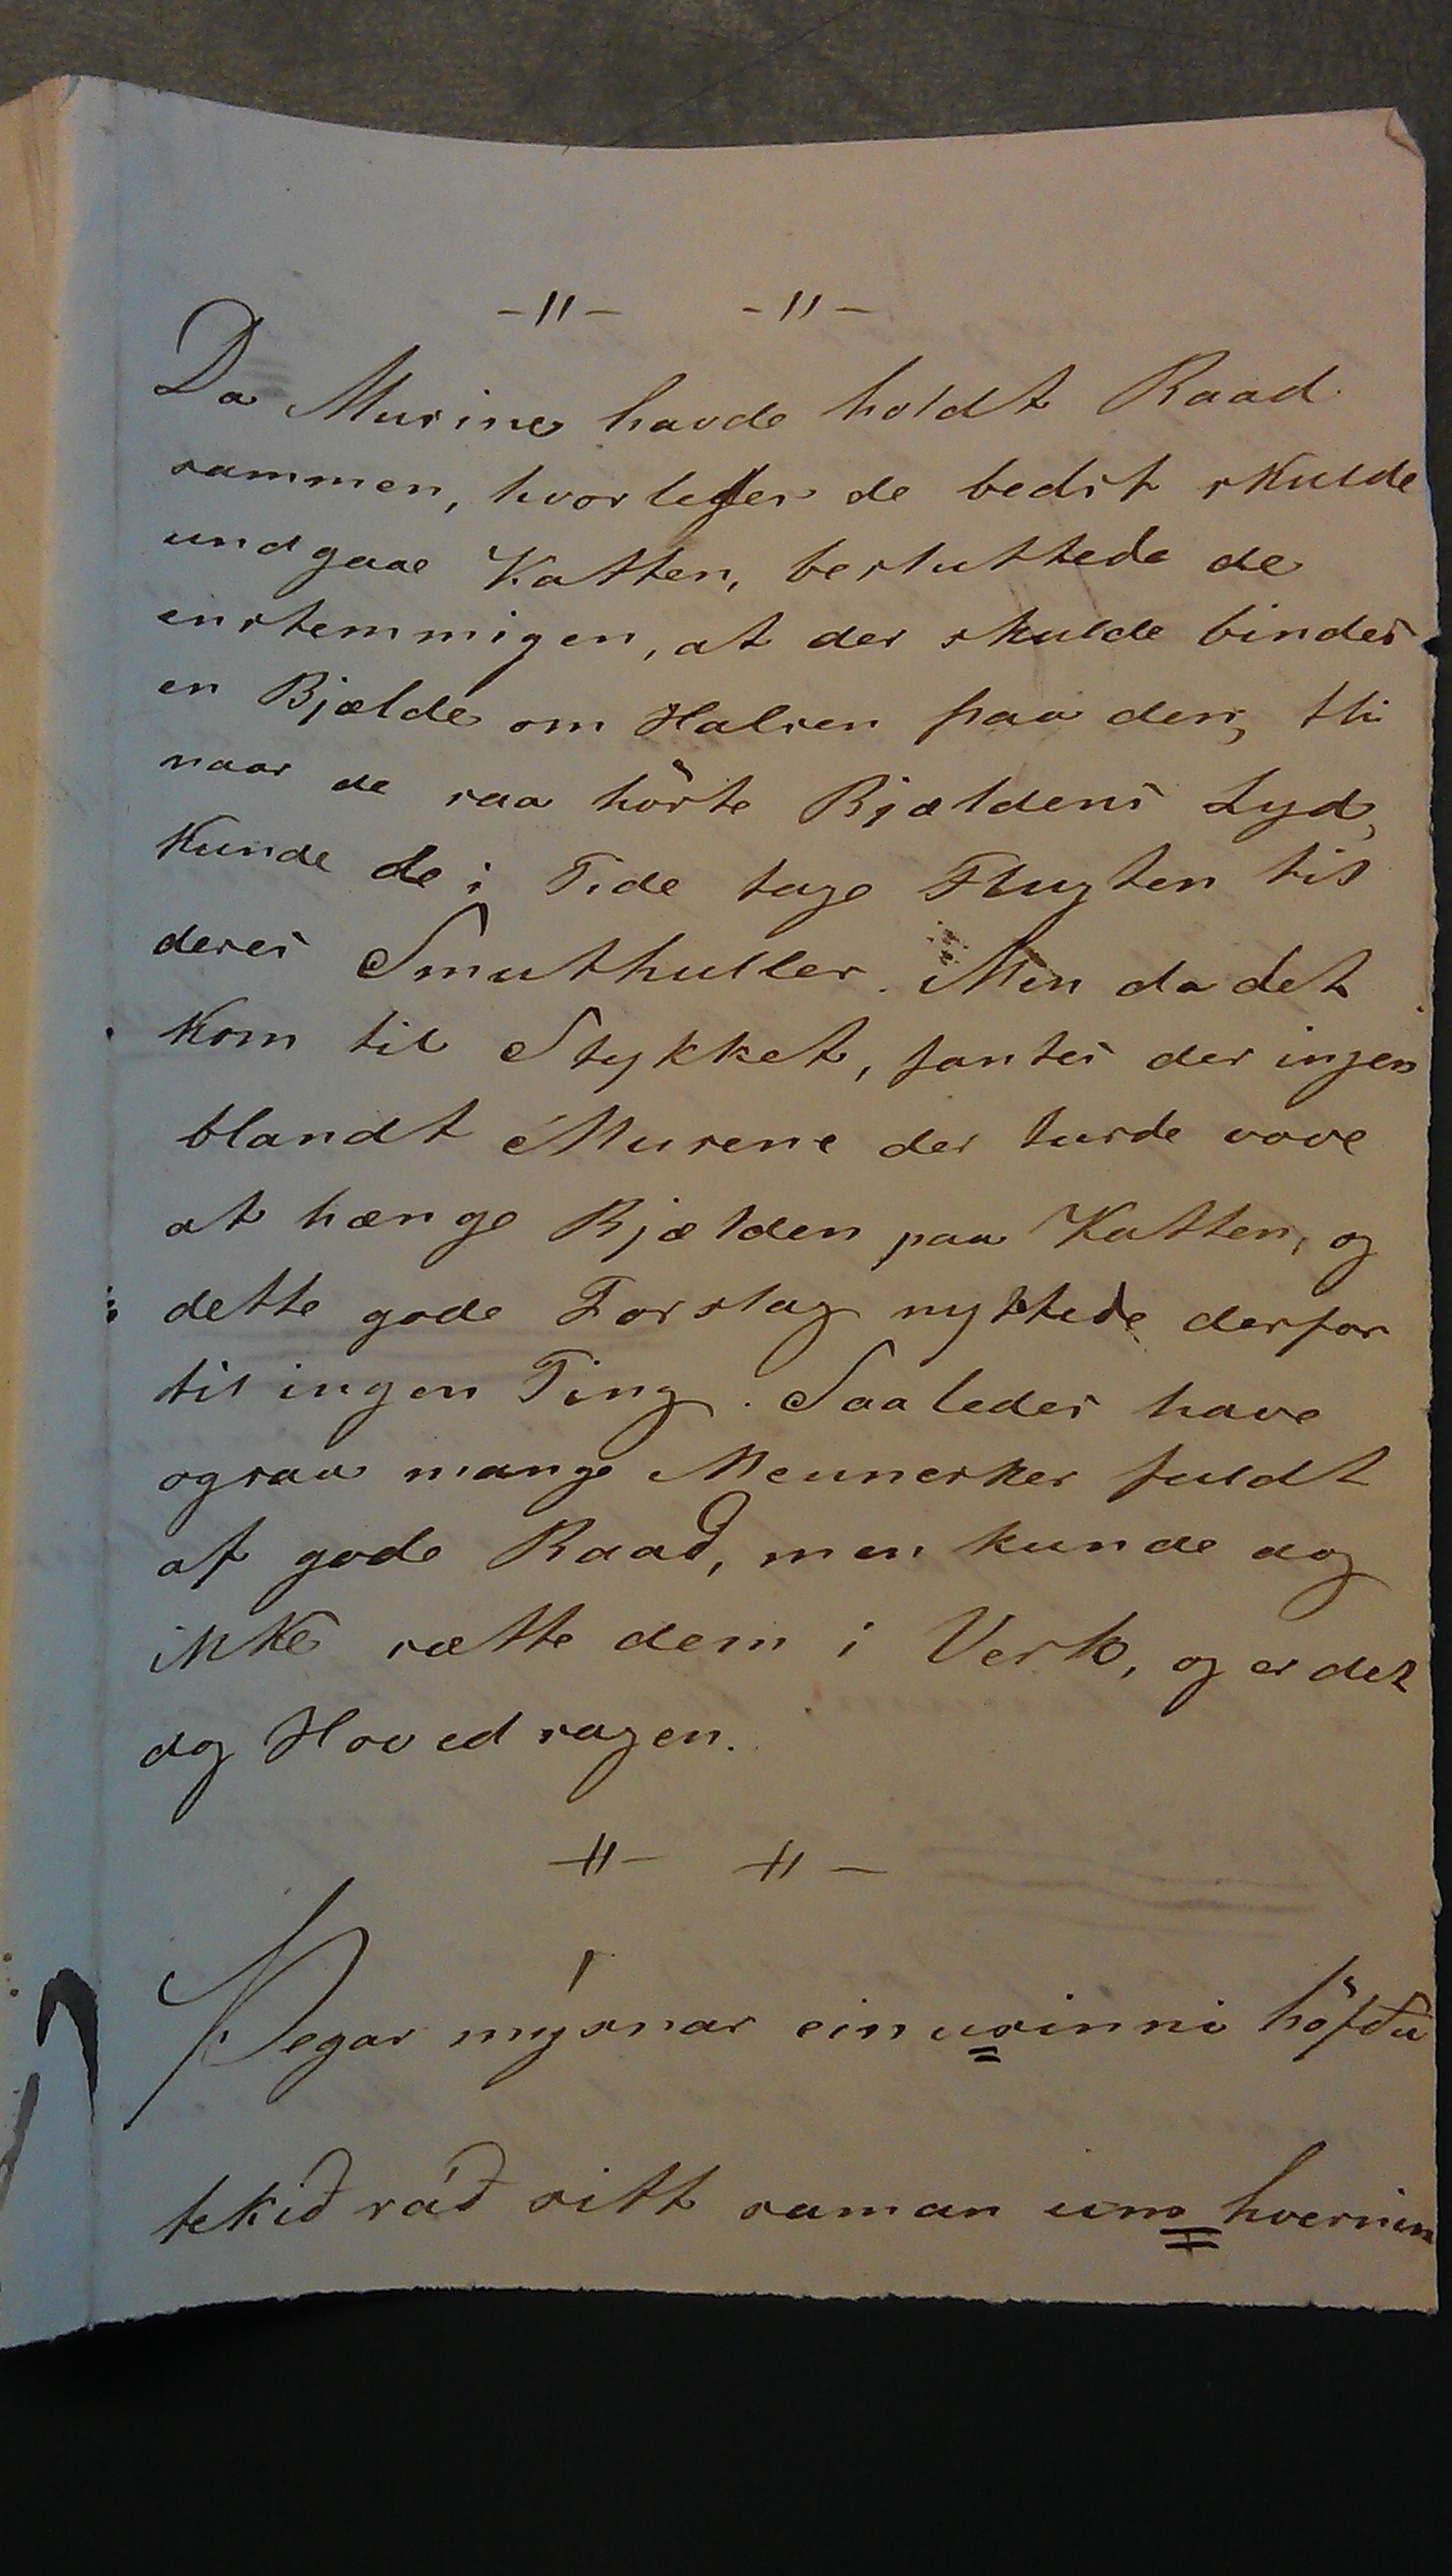 -〃- -〃-
Da Musine havde holdt Raad
sammen, hvorledes de bedst skulde
undgaae Katten, besluttede de
enstemmigen, at der skulde bindes
en Bjælde om Halsen paa den, thi
naar de saa hörte Bjældens Lyd,
Kunde de i Tide tage Flugten til
deres Smuthuller. Men da det
Kom til Stykket, fantes der ingen
blandt Musene der turde vove
at hænge Bjælden paa Katten, og
dette gode Forslag nyttede derfor
til ingen Ting. Saaledes have
ogsaa mange Mennesker fuldt
af gode Raad, men kunde dog
ikke sætte dem i Verk, og er det
dog Hovedsagen.
-〃- -〃-
Þegar mýsnar einusinni höfðu
tekið ráð sitt saman um hvernin